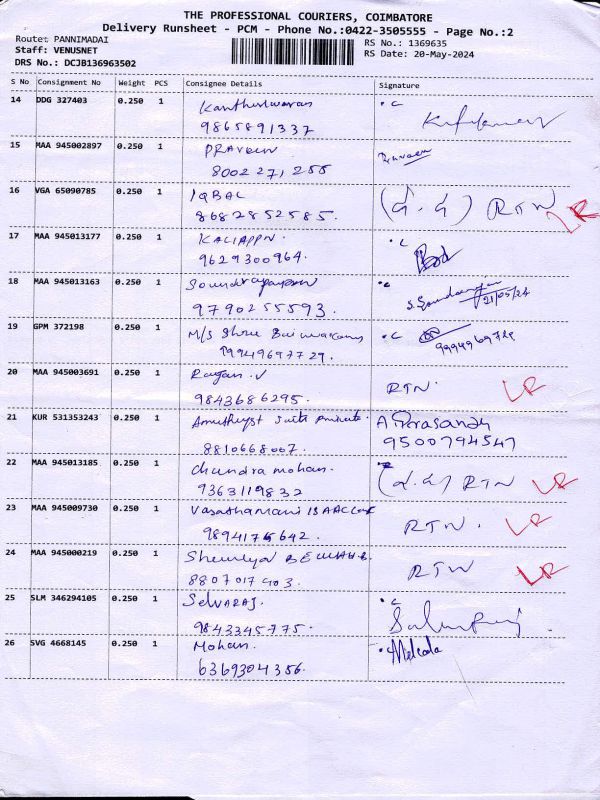 THE PROFESSIONAL COURIERS, COIMBATORE
Delivery Runsheet - PCM - Phone No.:0422-3505555 - Page No.:2
Route: PANNIMADAI
Staff: VENUSNET
DRS No.: DCJB136963502
RS No.: 1369635
RS Date: 20-May-2024
S No Consignment No Weight PCS Consignee Details Signature
14 DDG 327403 0.250 1
9865891337
15 MAA 945002897 0.250 1 PRAVEEN Praveen
8002271255
16 VGA 65090785 0.250 1 IQBAL RTN LR
8682852585.
17 MAA 945013177 0.250 1 KALIAPPN.
9629300964.
18 MAA 945013163 0.250 1 Soundrapapan 21/05/24
9790255593.
19 GPM 372198 0.250 1 M/s Shree
9994969729.
20 MAA 945003691 0.250 1 Rajan.V RTN. LR
9843686295.
21 KUR 531353243 0.250 1 A. Prasandh
8810668007. 9500794547
22 MAA 945013185 0.250 1 Chandra mohan. RTN LR
9363119832
23 MAA 945009730 0.250 1 RTN. LR
9894175642.
24 MAA 945000219 0.250 1 RTN LR
8807017403.
25 SLM 346294105 0.250 1 Selvaraj.
9843345775.
26 SVG 4668145 0.250 1 Mohan.
6369304356.